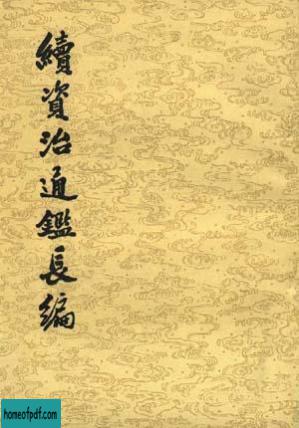 續資治通鑑長編
homeofpdf.com